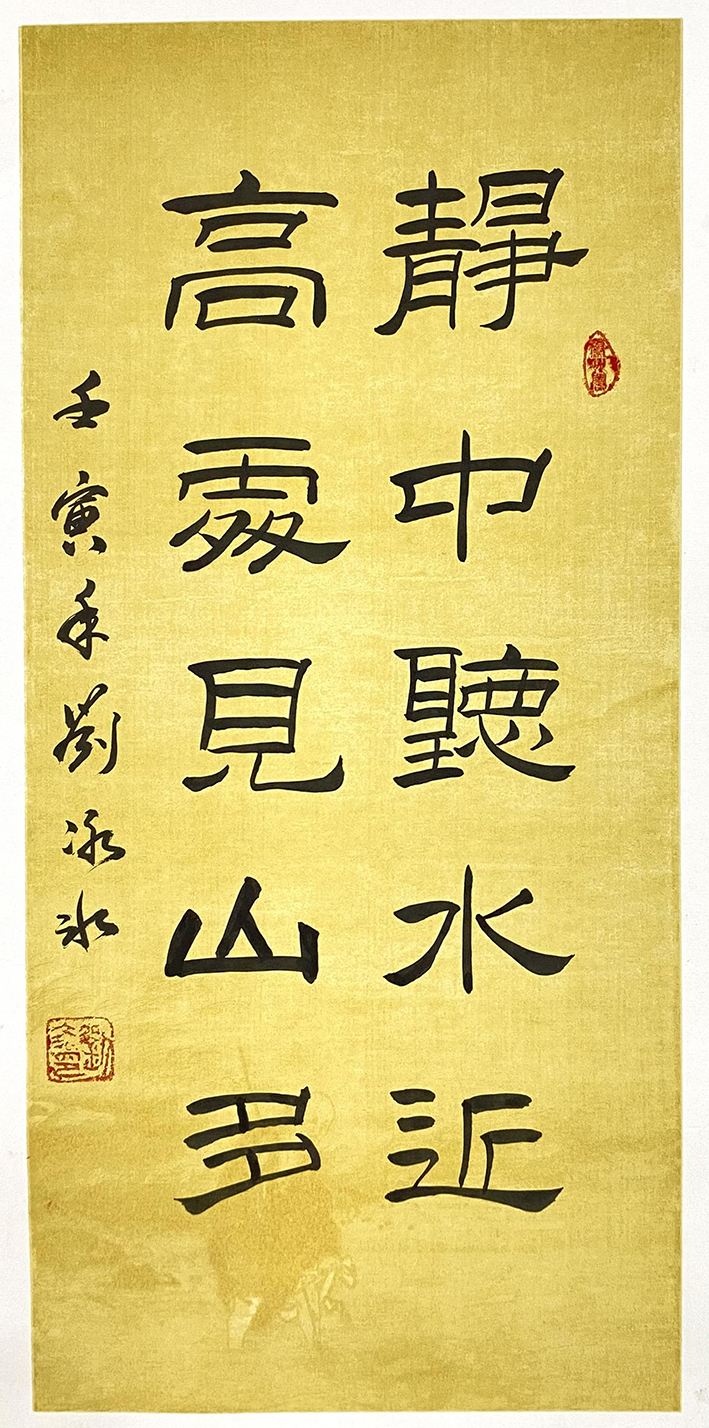 靜中聽水近
高處見山多
壬寅年劉冰冰